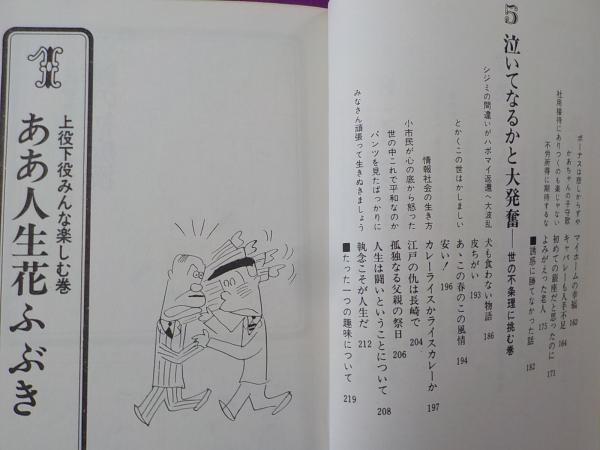 ボーナスは悲しからずや
マイホームの幸福 160
かあちゃんの子守歌
キャバレーも人手不足 164
社用接待にありつくのも楽じゃない
初めての銀座だと思ったのに 171
不労所得に期待するな
よみがえった老人 175
■誘惑に勝てなかった話 182
5 泣いてなるかと大発奮──世の不条理に挑む巻
シジミの間違いがハボマイ返還へ大波乱
犬も食わない物語 186
皮ちがい 193
とかくこの世はかしましい
あゝこの春のこの風情 194
安い! 196
情報社会の生き方
カレーライスかライスカレーか 197
小市民が心の底から怒った
江戸の仇は長崎で 204
世の中これで平和なのか
孤独なる父親の祭日 206
パンツを見たばっかりに
人生は闘いということについて 208
みなさん頑張って生きぬきましょう
執念こそが人生だ 212
■たった一つの趣味について 219
1
上役下役みんな楽しむ巻
ああ人生花ふぶき